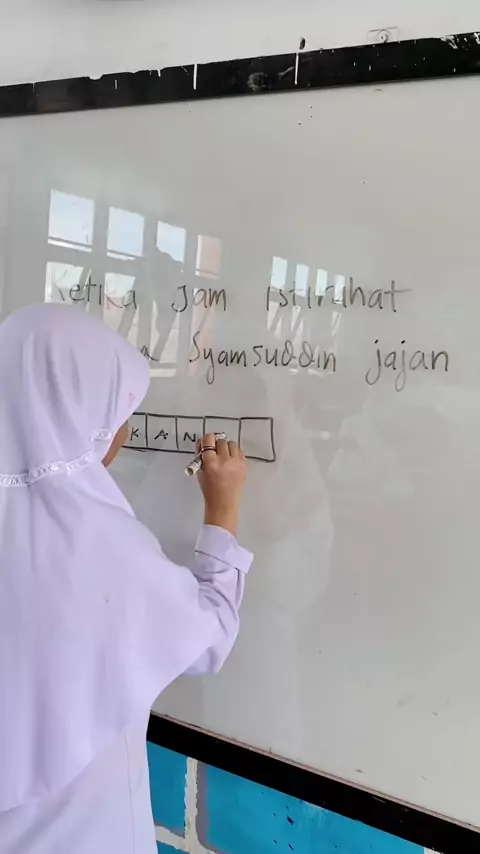 Ketika Jam istiruhat
Syamsuddin jajan
K A N